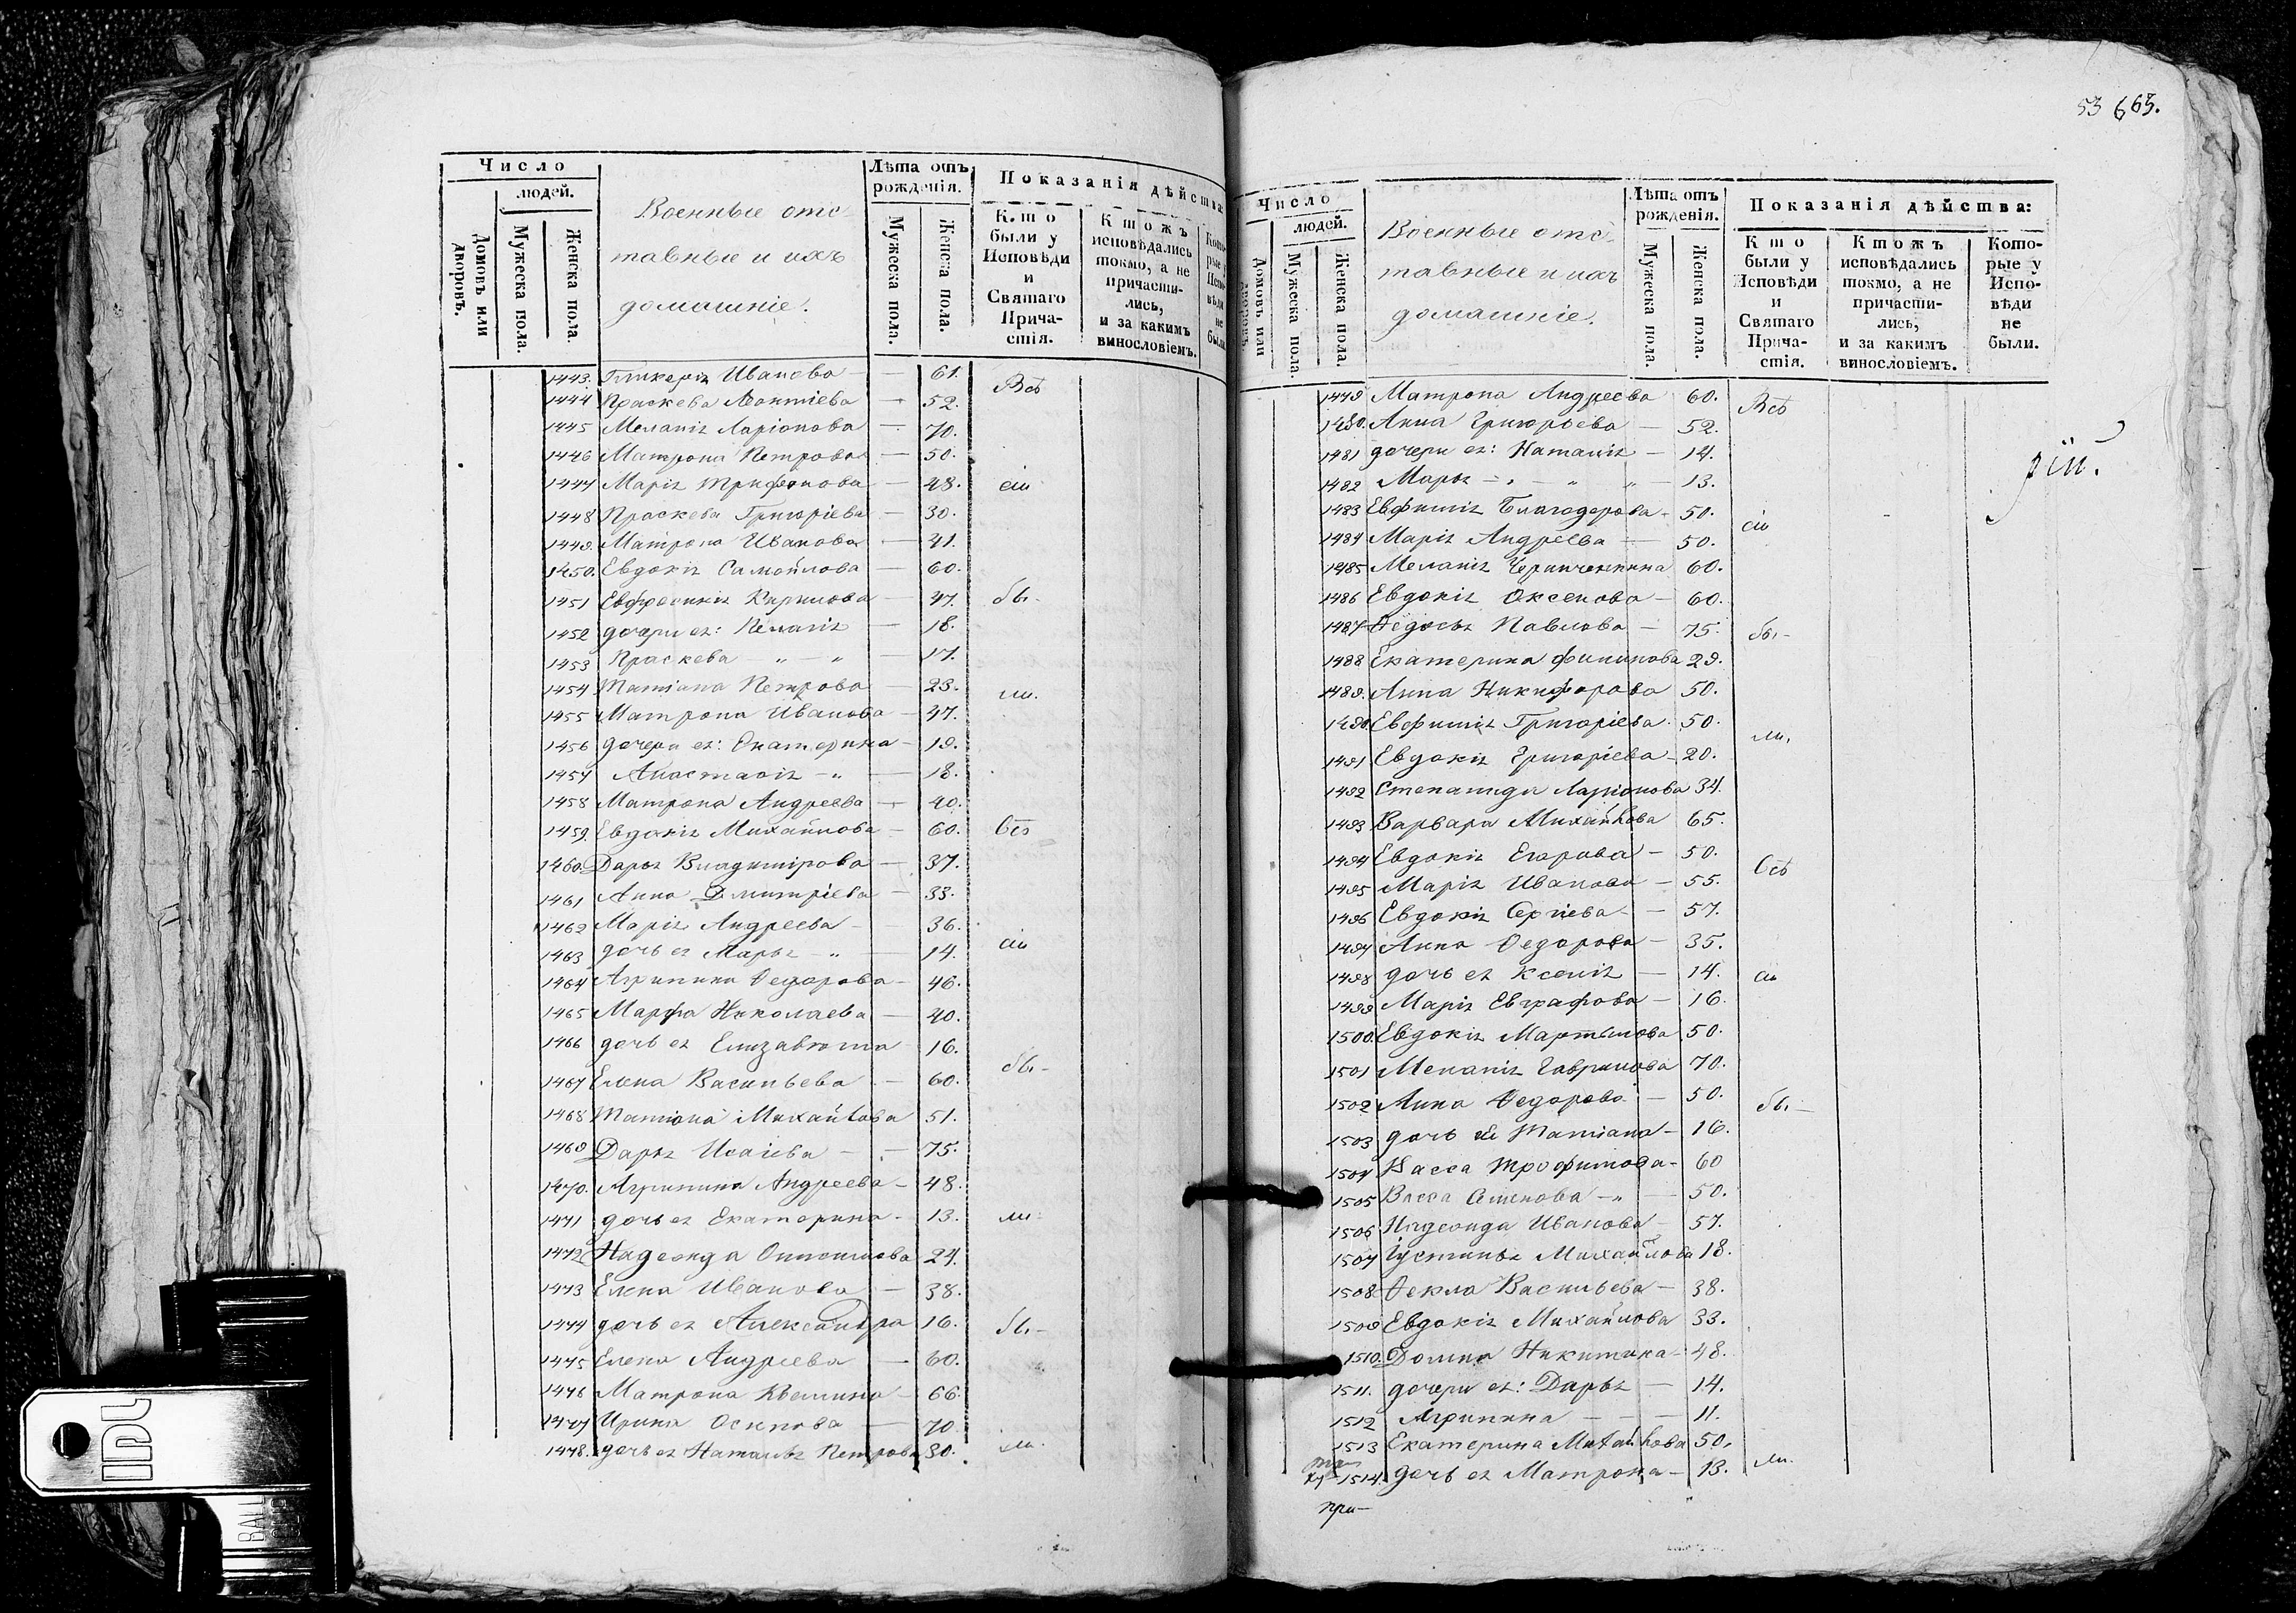 53 665.
Число
людей.
Домовъ или дворовъ.
Мужеска пола.
Женска пола.
Военные отс-
тавные и ихъ
домашніе.
Лѣта отъ рожденія.
Мужеска пола.
Женска пола.
Показанія дѣйства:
Кто были у Исповѣди и Святаго Причастія.
Ктожъ исповѣдались токмо, а не причастились, и за какимъ винословіемъ.
Которые у Исповѣди не были.
1443. Гликерія Иванова — 61.
Всѣ
1444 Праскева Леонтіева — 52.
1445 Меланія Ларіонова — 70.
1446 Матрона Петрова — 50.
1447 Марія Трифонова — 48.
сіи
1448 Праскева Григоріева — 30.
1449. Матрона Иванова — 41.
1450. Евдокія Самойлова — 60.
1451 Евфросинія Кирилова — 47.
бы-
1452 дочери ея: Пелагія — 18.
1453 Праскева — „ — „ — 17.
1454 Татіана Петрова — 23.
ли.
1455 Матрона Иванова — 47.
1456 дочери ея: Екатерина — 19.
1457 Анастасія — „ — 18.
1458 Матрона Андреева — 40.
1459. Евдокія Михайлова — 60.
Всѣ
1460. Дарья Владимірова — 37.
1461 Анна Дмитріева — 33.
1462 Марія Андреева — 36.
1463 дочь ея Марья — „ — 14.
сіи
1464 Агрипина Ѳедорова — 46.
1465 Марфа Николаева — 40.
1466 дочь ея Елизавета 16.
1467 Елена Васильева — 60.
бы-
1468 Татіана Михайлова 51.
1469 Дарья Исаіева — 75.
1470. Агрипина Андреева — 48.
1471 дочь ея Екатерина — 13.
ли.
1472 Надежда Онисимова 24.
1473 Елена Иванова — 38.
1474 дочь ея Александра 16.
бы-
1475 Елена Андреева — 60.
1476 Матрона 66.
1477 Ирина Осипова — 70
1478. дочь ея Наталья Петрова 30.
ли.
Число
людей.
Домовъ или дворовъ.
Мужеска пола.
Женска пола.
Военные отс-
тавные и ихъ
домашніе.
Лѣта отъ рожденія.
Мужеска пола.
Женска пола.
Показанія дѣйства:
Кто были у Исповѣди и Святаго Причастія.
Ктожъ исповѣдались токмо, а не причастились, и за какимъ винословіемъ.
Которые у Исповѣди не были.
1479 Матрона Андреева 60.
Всѣ
1480. Анна Григорьева — 52.
1481 дочери ея: Наталія — 14.
1482 Марья — „ — „ — 13.
1483 Евфимія Благодерова — 50.
сіи
1484 Марія Андреева — 50.
1485 Меланія 60.
1486 Евдокія Оксенова — 60.
1487 Ѳедосья Павлова — 75.
бы-
1488 Екатерина Филипова 29.
1489. Анна Никифорова 50.
1490. Евфимія Григоріева. 50.
ли.
1491 Евдокія Григоріева — 20.
1492 Степанида Ларіонова 34.
1493 Варвара Михайлова 65.
1494 Евдокія Егорова — 50.
Всѣ
1495 Марія Иванова — 55.
1496 Евдокія Сергіева — 57.
1497 Анна Ѳедорова — 35.
1498 дочь ея Ксенія — 14.
сіи
1499 Марія Евграфова — 16.
1500. Евдокія Мартынова 50.
1501 Меланія Гаврилова 70.
1502 Анна Ѳедорова — 50.
бы-
1503 дочь ея Татіана — 16.
1504 Васса Трофимова — 60
1505 Васса Семенова — „ — 50.
1506 Надежда Иванова — 57.
1507 Густинья Михайлова 18.
1508 Ѳекла Васильева — 38.
1509 Евдокія Михайлова 33.
1510. Домна Никитина — 48.
1511. дочери ея: Дарья — 14.
1512 Агрипина — — — 11.
1513 Екатерина Михайлова 50.
1514. дочь ея Матрона — 13.
ли.
при-